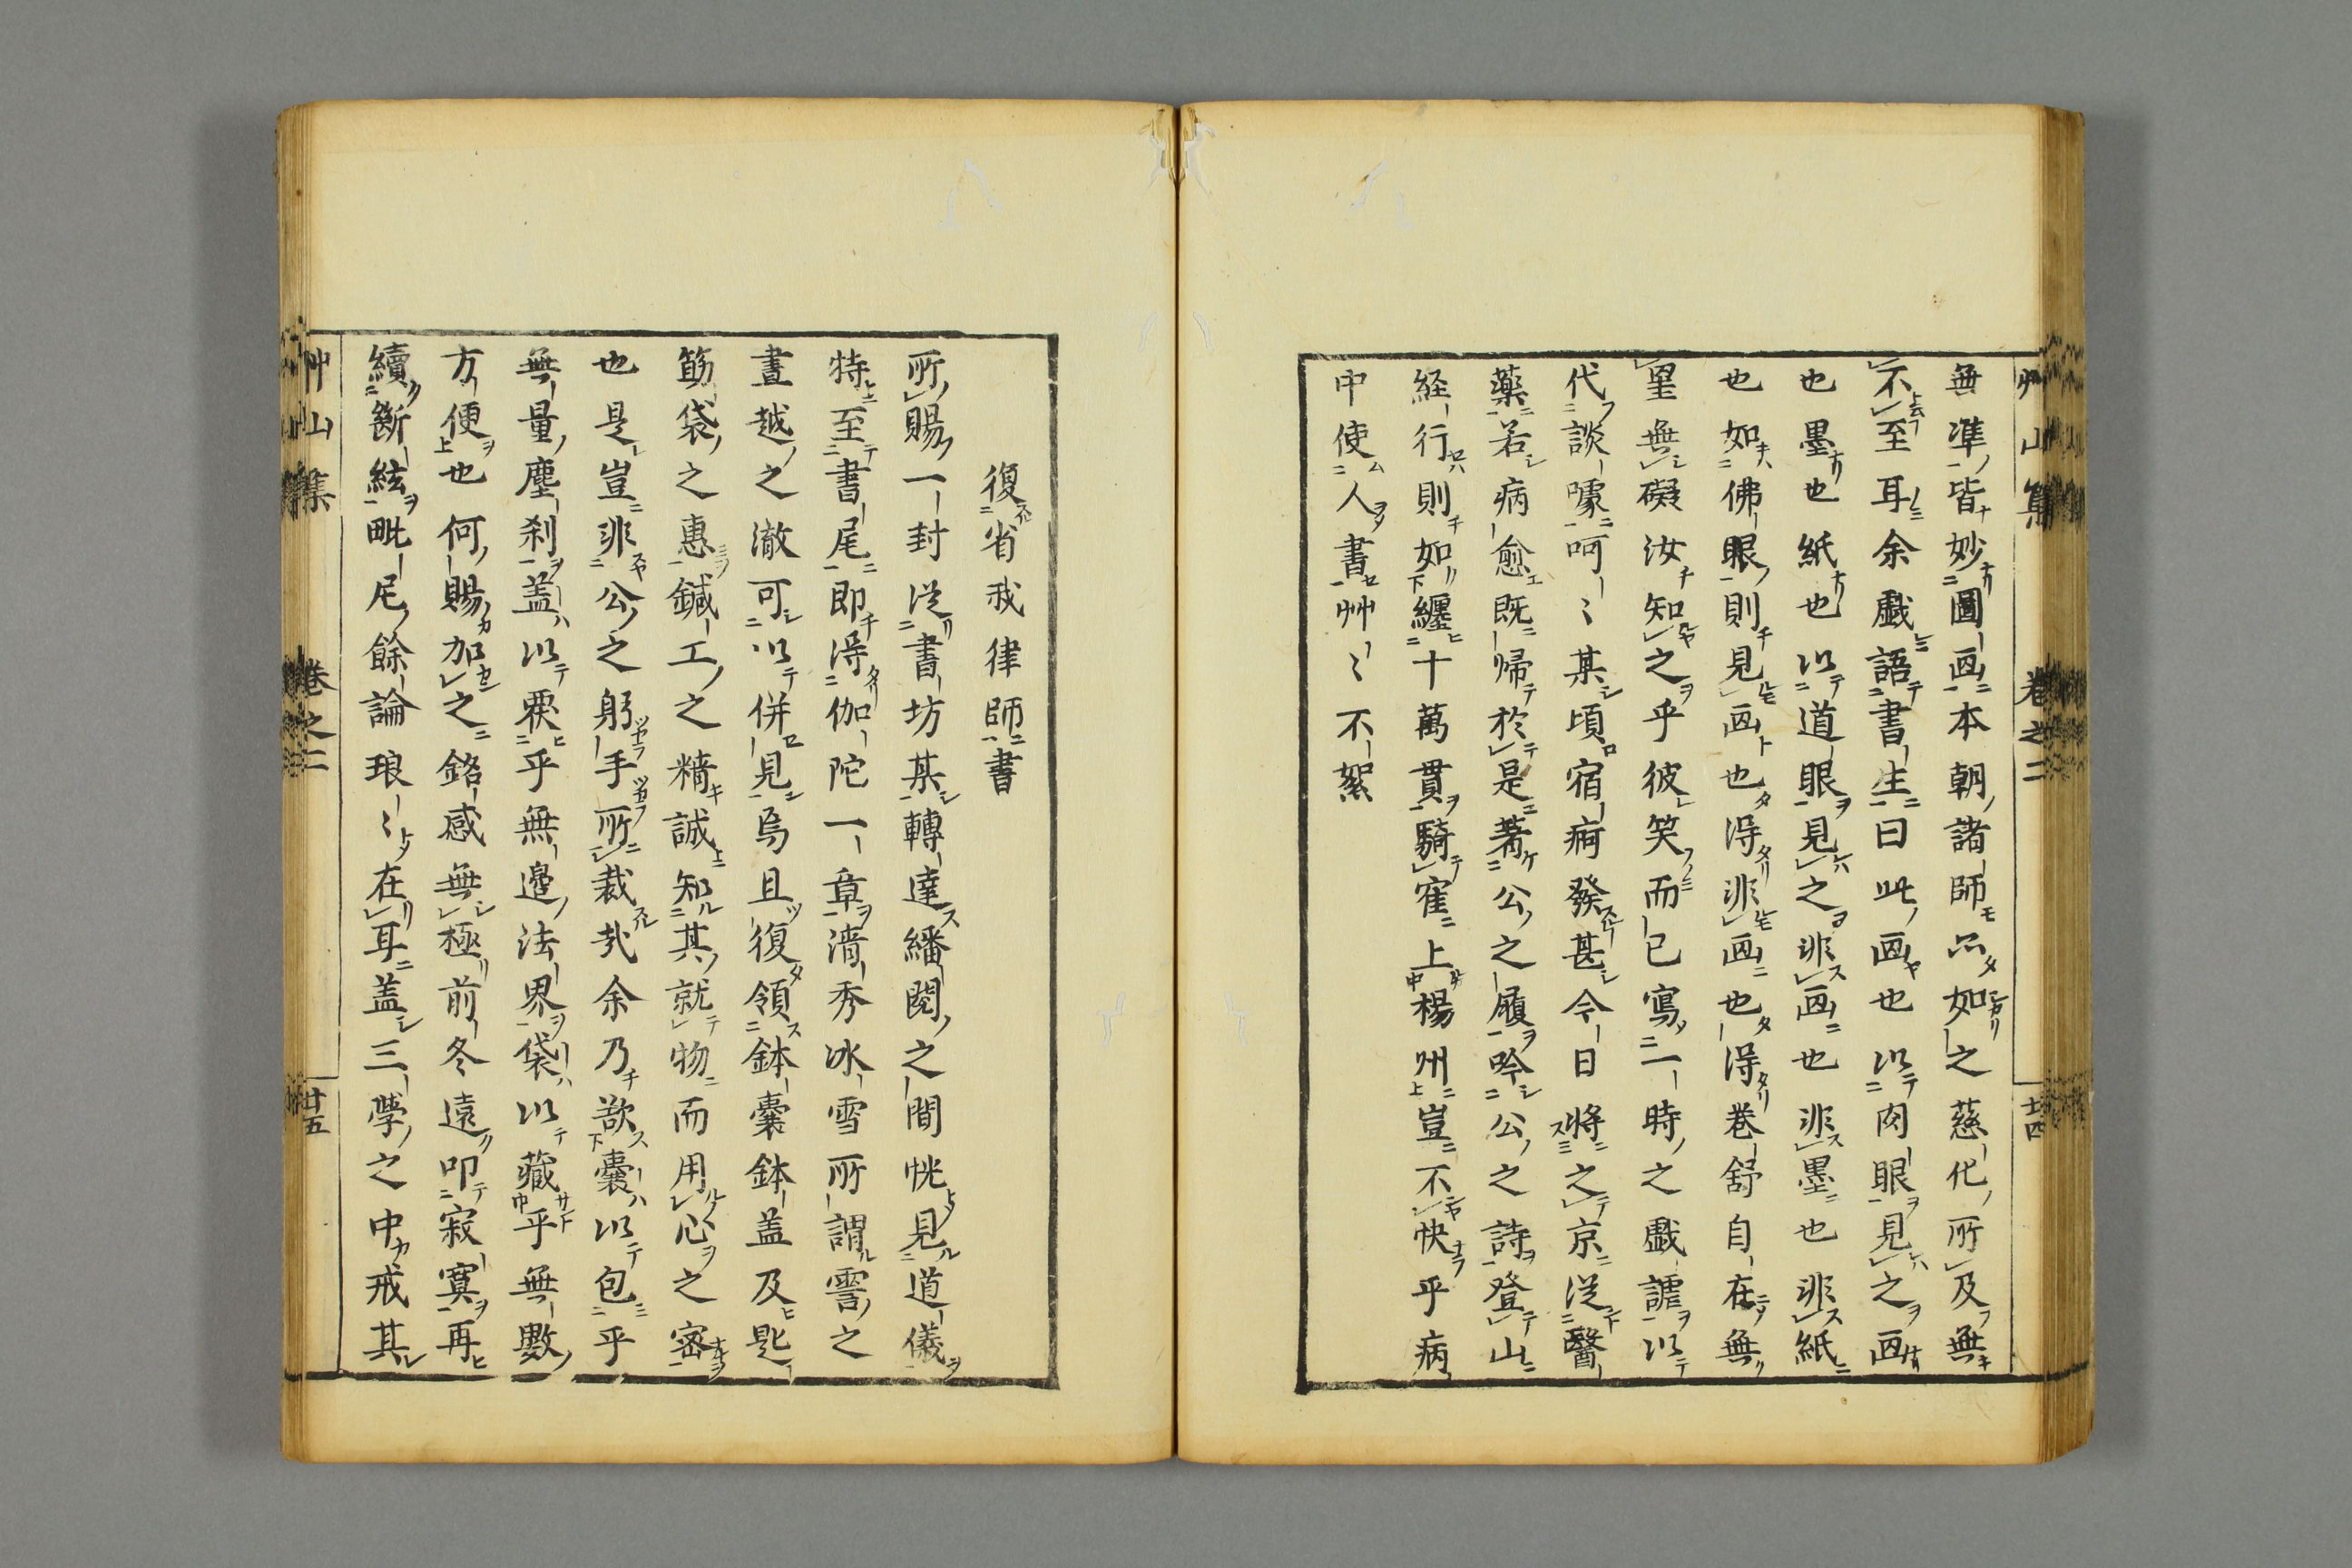 艸山集 卷之二 廿四
無準皆妙圖画本朝諸師亦如之慈化所及無
不至耳余戲語書生曰此画也以肉眼見之画
也墨也紙也以道眼見之非画也非墨也非紙
也如佛眼則見画也得非画也得卷舒自在無
罣無礙汝知之乎彼笑而已寫一時之戲謔以
代談噱呵〻某頃宿痾發甚今日將之京從醫
藥若病愈既帰於是著公之履吟公之詩登山
経行則如纏十萬貫騎寉上楊州豈不快乎病
中使人書艸〻不絮
復省我律師書
所賜一封從書坊某轉達繙閱之間恍見道儀
特至書尾即得伽陀一章清秀冰雪所謂霅之
晝越之澈可以併見焉且復領鉢囊鉢盖及匙
筯袋之惠鍼工之精誠知其就物而用心之密
也是豈非公之躬手所裁㢤余乃欲囊以包乎
無量塵刹盖以覆乎無邊法界袋以藏乎無數
方便也何賜加之銘感無極前冬遠叩寂寞再
續斷絃毗尼餘論琅〻在耳盖三學之中戒其
艸山集 卷之二 廿五